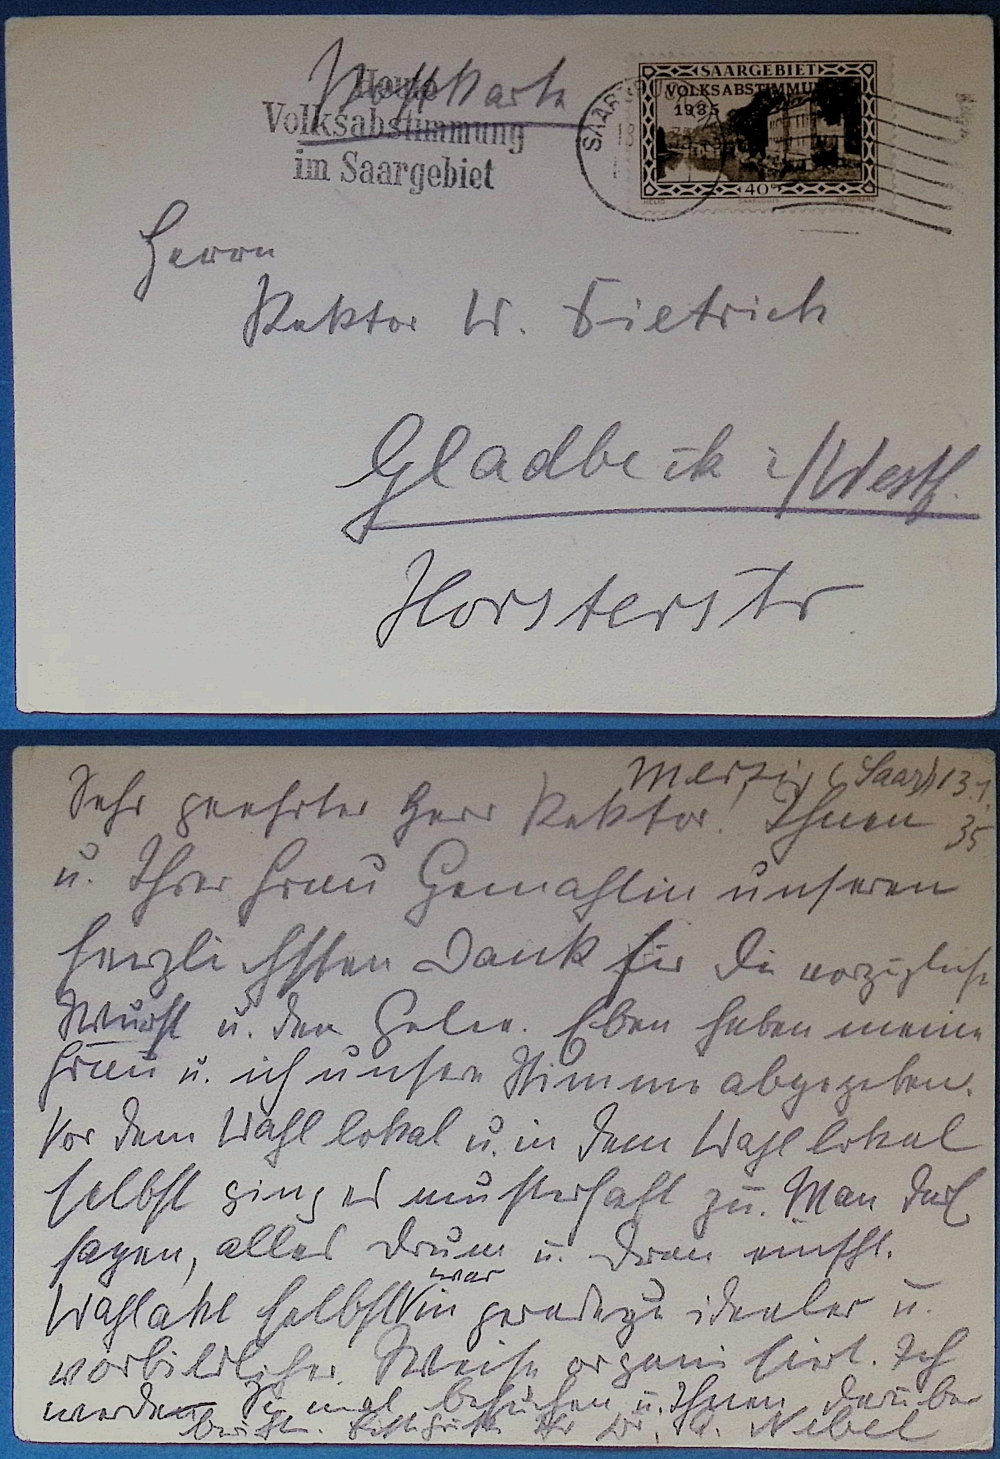 Postkarte
Heute
Volksabstimmung
im Saargebiet
SAARGEBIET
VOLKSABSTIMMUNG
1935
40
Herrn
Rektor W. Dietrich
Gladbeck i/Westf.
Horsterstr
Merzig (Saar) 13.1.
35
Sehr geehrter Herr Rektor. Ihnen
u. Ihrer Frau Gemahlin unseren
herzlichsten Dank für die vorzügliche
Wurst u. den Gelee. Eben haben meine
Frau u. ich unsere Stimme abgegeben.
Vor dem Wahllokal u. in dem Wahllokal
selbst ging es musterhaft zu. Man darf
sagen, alles drum u. dran einschl.
Wahlakt selbst war in geradezu idealer u.
vorbildlicher Weise organisiert. Ich
werde Sie mal besuchen u. Ihnen darüber
Nebel